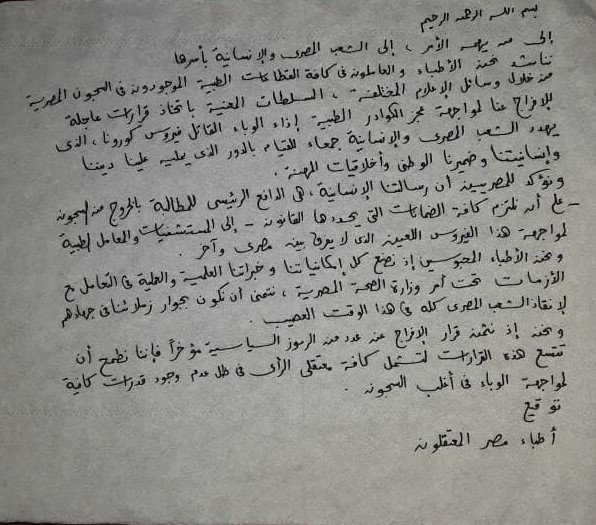 بسم الله الرحمن الرحيم
إلى من يهمه الأمر ، إلى الشعب المصرى والإنسانية بأسرها
نناشد نحن الأطباء والعاملون فى كافة القطاعات الطبية الموجودون فى السجون المصرية
من خلال وسائل الإعلام المختلفة ، السلطات المعنية باتخاذ قرارات عاجلة
للإفراج عنا لمواجهة عجز الكوادر الطبية إزاء الوباء القاتل فيروس كورونا ، الذى
يهدد الشعب المصرى والإنسانية جمعاء للقيام بالدور الذى يمليه علينا ديننا
وإنسانيتنا وضميرنا الوطنى وأخلاقيات المهنة .
ونؤكد للمصريين أن رسالتنا الإنسانية ، هى الدافع الرئيسى للمطالبة بالخروج من السجون
- على أن نلتزم كافة الضمانات التى يحددها القانون - إلى المستشفيات والمعامل الطبية
لمواجهة هذا الفيروس اللعين الذى لا يفرق بين مصرى وآخر .
ونحن الأطباء المحبوسين إذ نضع كل إمكانياتنا وخبراتنا العلمية والعملية فى التعامل مع
الأزمات تحت أمر وزارة الصحة المصرية ، نتمنى أن نكون بجوار زملائنا فى جهادهم
لإنقاذ الشعب المصرى كله فى هذا الوقت العصيب .
ونحن إذ نثمن قرار الإفراج عن عدد من الرموز السياسية مؤخراً فإننا نطمع أن
تتسع هذه القرارات لتشمل كافة معتقلى الرأى فى ظل عدم وجود قدرات كافية
لمواجهة الوباء فى أغلب السجون .
توقيع
أطباء مصر المعتقلون